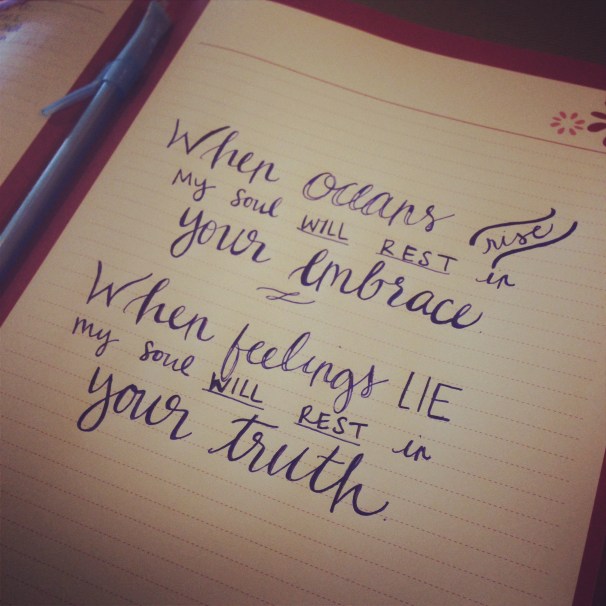 When oceans rise
My soul WILL REST in
your embrace.
When feelings LIE
my soul WILL REST in
your truth.